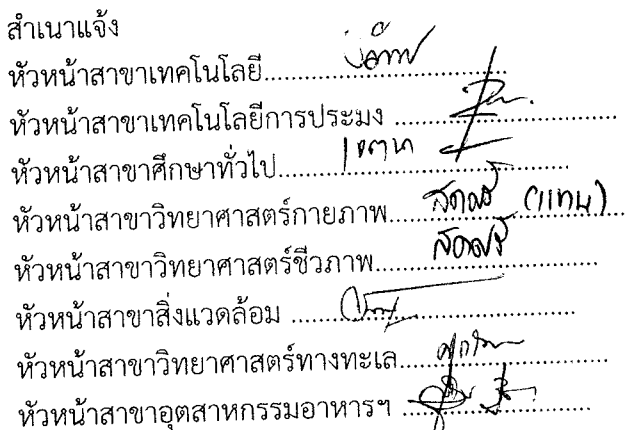 สำเนาแจ้ง
หัวหน้าสาขาเทคโนโลยี..............................
หัวหน้าสาขาเทคโนโลยีการประมง ..............................
หัวหน้าสาขาศึกษาทั่วไป..............................
หัวหน้าสาขาวิทยาศาสตร์กายภาพ.............................. (แทน)
หัวหน้าสาขาวิทยาศาสตร์ชีวภาพ..............................
หัวหน้าสาขาสิ่งแวดล้อม ..............................
หัวหน้าสาขาวิทยาศาสตร์ทางทะเล..............................
หัวหน้าสาขาอุตสาหกรรมอาหารฯ ..............................